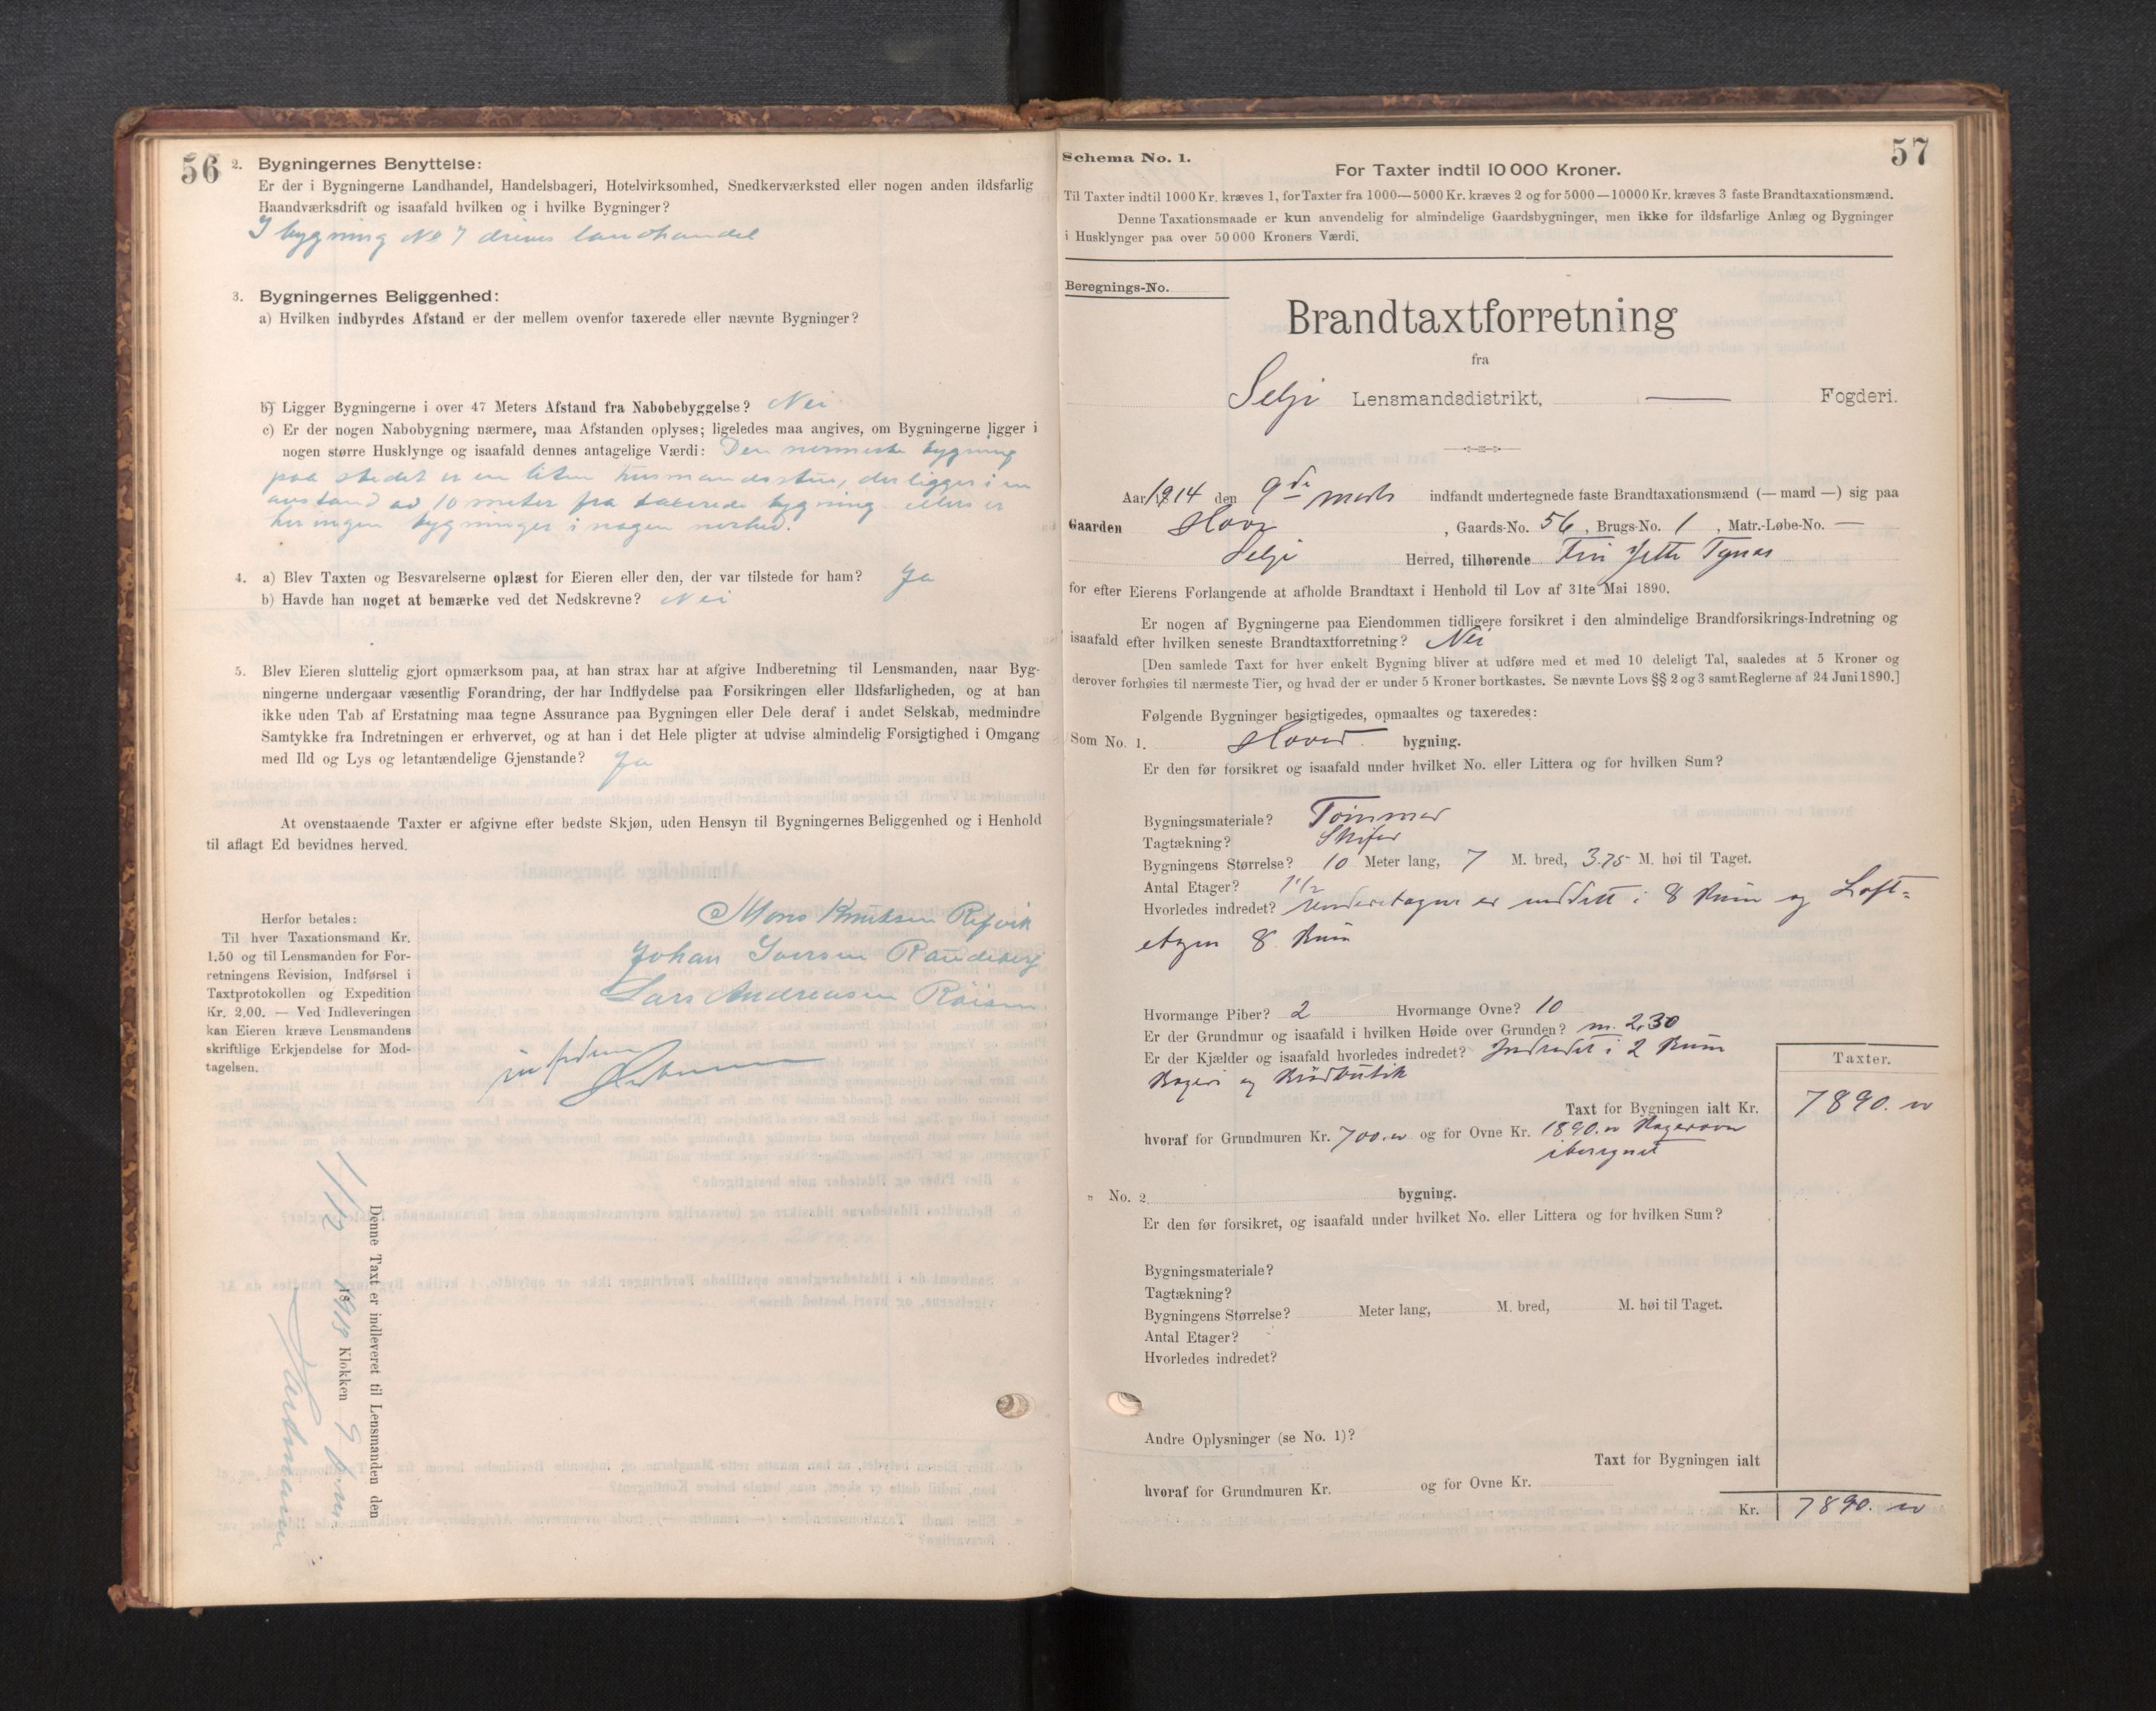 56
2. Bygningernes Benyttelse:
Er der i Bygningerne Landhandel, Handelsbageri, Hotelvirksomhed, Snedkerværksted eller nogen anden ildsfarlig
Haandværksdrift og isaafald hvilken og i hvilke Bygninger?
I bygning No 7 drives landhandel
3. Bygningernes Beliggenhed:
a) Hvilken indbyrdes Afstand er der mellem ovenfor taxerede eller nævnte Bygninger?
b) Ligger Bygningerne i over 47 Meters Afstand fra Nabobebyggelse? Nei
c) Er der nogen Nabobygning nærmere, maa Afstanden oplyses; ligeledes maa angives, om Bygningerne ligger i
nogen større Husklynge og isaafald dennes antagelige Værdi: Den nermeste bygning
paa stedet er en liten husmandsstue, der ligger i en
avstand av 10 meter fra takserede bygning ellers er
her ingen bygninger i nogen nerhed.
4. a) Blev Taxten og Besvarelserne oplæst for Eieren eller den, der var tilstede for ham? Ja
b) Havde han noget at bemærke ved det Nedskrevne? Nei
5. Blev Eieren sluttelig gjort opmærksom paa, at han strax har at afgive Indberetning til Lensmanden, naar Byg-
ningerne undergaar væsentlig Forandring, der har Indflydelse paa Forsikringen eller Ildsfarligheden, og at han
ikke uden Tab af Erstatning maa tegne Assurance paa Bygningen eller Dele deraf i andet Selskab, medmindre
Samtykke fra Indretningen er erhvervet, og at han i det Hele pligter at udvise almindelig Forsigtighed i Omgang
med Ild og Lys og letantændelige Gjenstande? Ja
At ovenstaaende Taxter er afgivne efter bedste Skjøn, uden Hensyn til Bygningernes Beliggenhed og i Henhold
til aflagt Ed bevidnes herved.
Mons Knutsen Refvik
Johan Iversen Raudeberg
Lars Andreasen
Herfor betales:
Til hver Taxationsmand Kr.
1.50 og til Lensmanden for For-
retningens Revision, Indførsel i
Taxtprotokollen og Expedition
Kr. 2.00. — Ved Indleveringen
kan Eieren kræve Lensmandens
skriftlige Erkjendelse for Mod-
tagelsen.
Denne Taxt er indleveret til Lensmanden den
1/12 1913 Klokken 9
57
Schema No. 1.
For Taxter indtil 10 000 Kroner.
Til Taxter indtil 1000 Kr. kræves 1, for Taxter fra 1000—5000 Kr. kræves 2 og for 5000—10000 Kr. kræves 3 faste Brandtaxationsmænd.
Denne Taxationsmaade er kun anvendelig for almindelige Gaardsbygninger, men ikke for ildsfarlige Anlæg og Bygninger
i Husklynger paa over 50 000 Kroners Værdi.
Beregnings-No.
Brandtaxtforretning
fra
Selje Lensmandsdistrikt, — Fogderi.
Aar 1914 den 9de marts indfandt undertegnede faste Brandtaxationsmænd (— mand —) sig paa
Gaarden Hove, Gaards-No. 56, Brugs-No. 1, Matr.-Løbe-No. —
Selje Herred, tilhørende
for efter Eierens Forlangende at afholde Brandtaxt i Henhold til Lov af 31te Mai 1890.
Er nogen af Bygningerne paa Eiendommen tidligere forsikret i den almindelige Brandforsikrings-Indretning og
isaafald efter hvilken seneste Brandtaxtforretning? Nei
[Den samlede Taxt for hver enkelt Bygning bliver at udføre med et med 10 deleligt Tal, saaledes at 5 Kroner og
derover forhøies til nærmeste Tier, og hvad der er under 5 Kroner bortkastes. Se nævnte Lovs §§ 2 og 3 samt Reglerne af 24 Juni 1890.]
Følgende Bygninger besigtigedes, opmaaltes og taxeredes:
Som No. 1. Hoved bygning.
Er den før forsikret og isaafald under hvilket No. eller Littera og for hvilken Sum?
Bygningsmateriale? Tømmer
Tagtækning? Skifer
Bygningens Størrelse? 10 Meter lang, 7 M. bred, 3.75 M. høi til Taget.
Antal Etager? 1 1/2
Hvorledes indredet? Underetagen er inddelt i 8 Rum og Loft-
etagen 8 Rum
Hvormange Piber? 2 Hvormange Ovne? 10
Er der Grundmur og isaafald i hvilken Høide over Grunden? m. 2,30
Er der Kjælder og isaafald hvorledes indredet? Indredet i 2 Rum
Bageri og Brødbutik
Taxter.
Taxt for Bygningen ialt Kr. 7890.
hvoraf for Grundmuren Kr. 700. og for Ovne Kr. 1890. Bagerovn
iberegnet
" No. 2. bygning.
Er den før forsikret, og isaafald under hvilket No. eller Littera og for hvilken Sum?
Bygningsmateriale?
Tagtækning?
Bygningens Størrelse? Meter lang, M. bred, M. høi til Taget.
Antal Etager?
Hvorledes indredet?
Andre Oplysninger (se No. 1)?
Taxt for Bygningen ialt
hvoraf for Grundmuren Kr. og for Ovne Kr.
Kr. 7890.